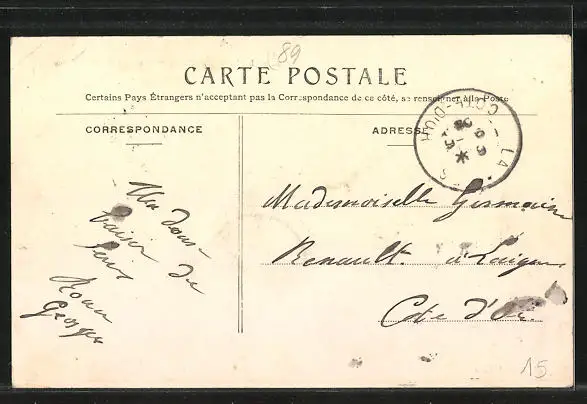 89
CARTE POSTALE
Certains Pays Étrangers n'acceptant pas la Correspondance de ce côté, se renseigner à la Poste
CORRESPONDANCE
ADRESSE
CÔTE-D'OR
LA
Un doux
baiser de
Georges
Mademoiselle Germaine
Renault à Laignes
Côte d'Or
15